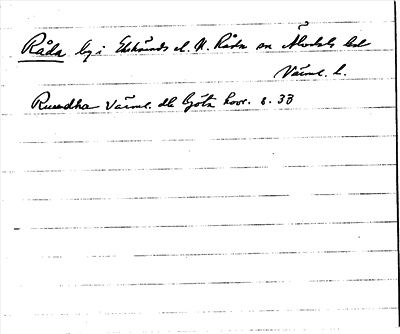 Råda by i Ekshärads el. N. Råda sn Älvdals hd
Värml. l.
Rundha Värml. dl Götz hovr. s. 33